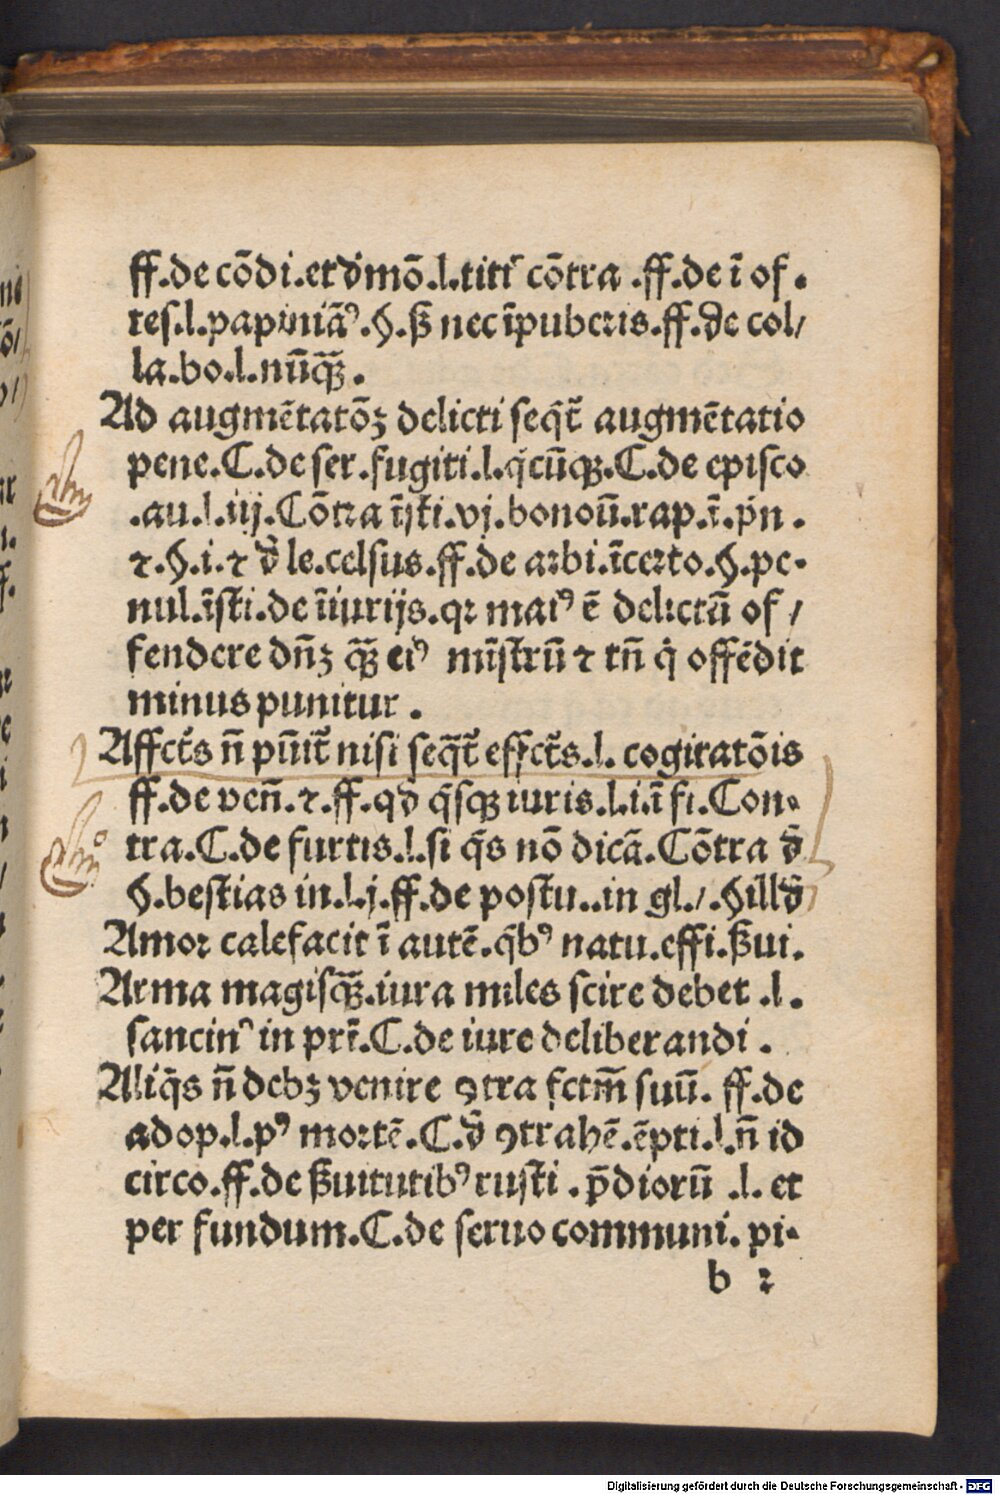 ff.de cõdi.et d̕mõ.l.titꝰ cõtra .ff.de ĩ of.
tes.l.papiniãꝰ.§.ß nec ĩpuberis.ff.de col/
la.bo.l.nũq̃ꝫ.
Ad augmẽtatõꝫ delicti seq̃t̃ augmẽtatio
pene.C.de ser.fugiti.l.q̃cũqꝫ.C.de episco
.au.l.iij.Cõtra ĩsti.vj.bonoũ.rap.ĩ.pñ.
⁊.§.i.⁊ d̕ le.celsus.ff.de arbi.ĩcerto.§.pe-
nul.ĩsti.de ĩiurijs.qꝛ maiꝰ ẽ delictũ of/
fendere dñꝫ q̃ꝫ eiꝰ mĩstrũ ⁊ tñ q̇ offẽdit
minus punitur.
Affct̃s ñ pũit̃ nisi seq̃t̃ effct̃s.l. cogitatõis
ff.de veñ.⁊.ff.qd̕ q̃sqꝫ iuris.l.i.ĩ fi.Con-
tra.C.de furtis.l.si q̃s nõ dicã.Cõtra d̕
§.bestias in.l.j.ff.de postu..in gl./.§illd̕
Amor calefacit ĩ autẽ.q̃bꝰ natu.effi.ßui.
Arma magisq̃ꝫ.iura miles scire debet .l.
sancinꝰ in prĩ.C.de iure deliberandi.
Aliq̃s ñ debꝫ venire ꝯtra fctm̃ suũ. ff.de
adop.l.pꝰ mortẽ.C.d̕ ꝯtrahẽ.ẽpti.l.ñ id
circo.ff.de ßuitutibꝰ rusti.p̃diorũ .l. et
per fundum.C.de seruo communi. pi-
b 2
Digitalisierung gefördert durch die Deutsche Forschungsgemeinschaft - DFG